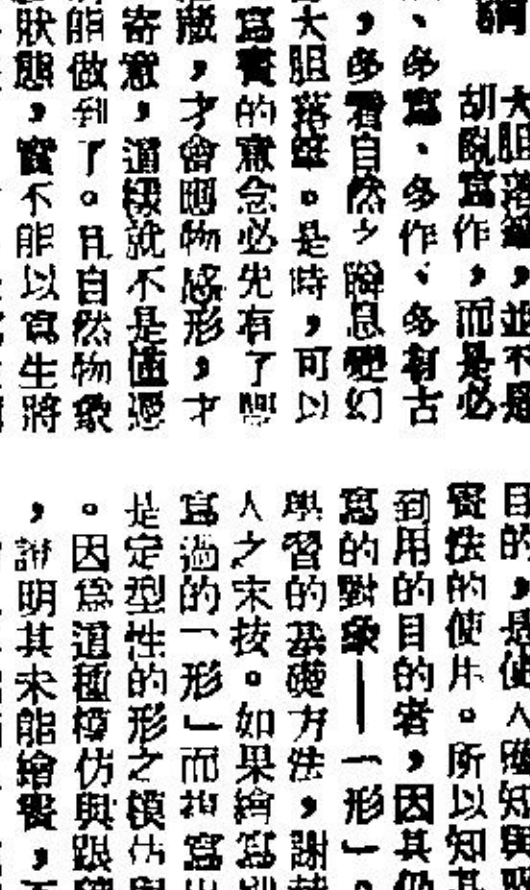 大胆落筆,並不是
胡亂寫作,而是必
、多寫、多作、多看古
,多看自然之瞬息變幻
大胆落筆。是時,可以
寫實的意念必先有了
,才會睹物感形,才
寄意,這樣就不是僅憑
能做到了。且自然物象
狀態,實不能以寫生將
目的,是使人獲知
實性的使用。所以知其
到用的目的者,因其仍
寫的對象——「形」。
學習的基礎方法,謝赫
人之末按。如果繪寫
寫過的「形」而描寫出
是定型性的形之模仿與
。因為這種模仿與跟
,說明其未能繪畫,不